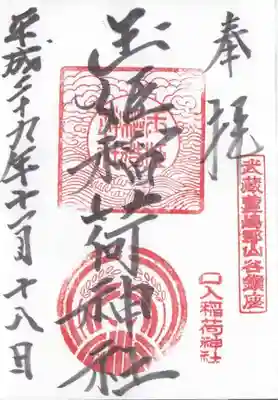 奉拝
武蔵豊嶋郡山谷鎮座
玉姫稲荷神社
口入稲荷神社
平成二十九年十一月十八日